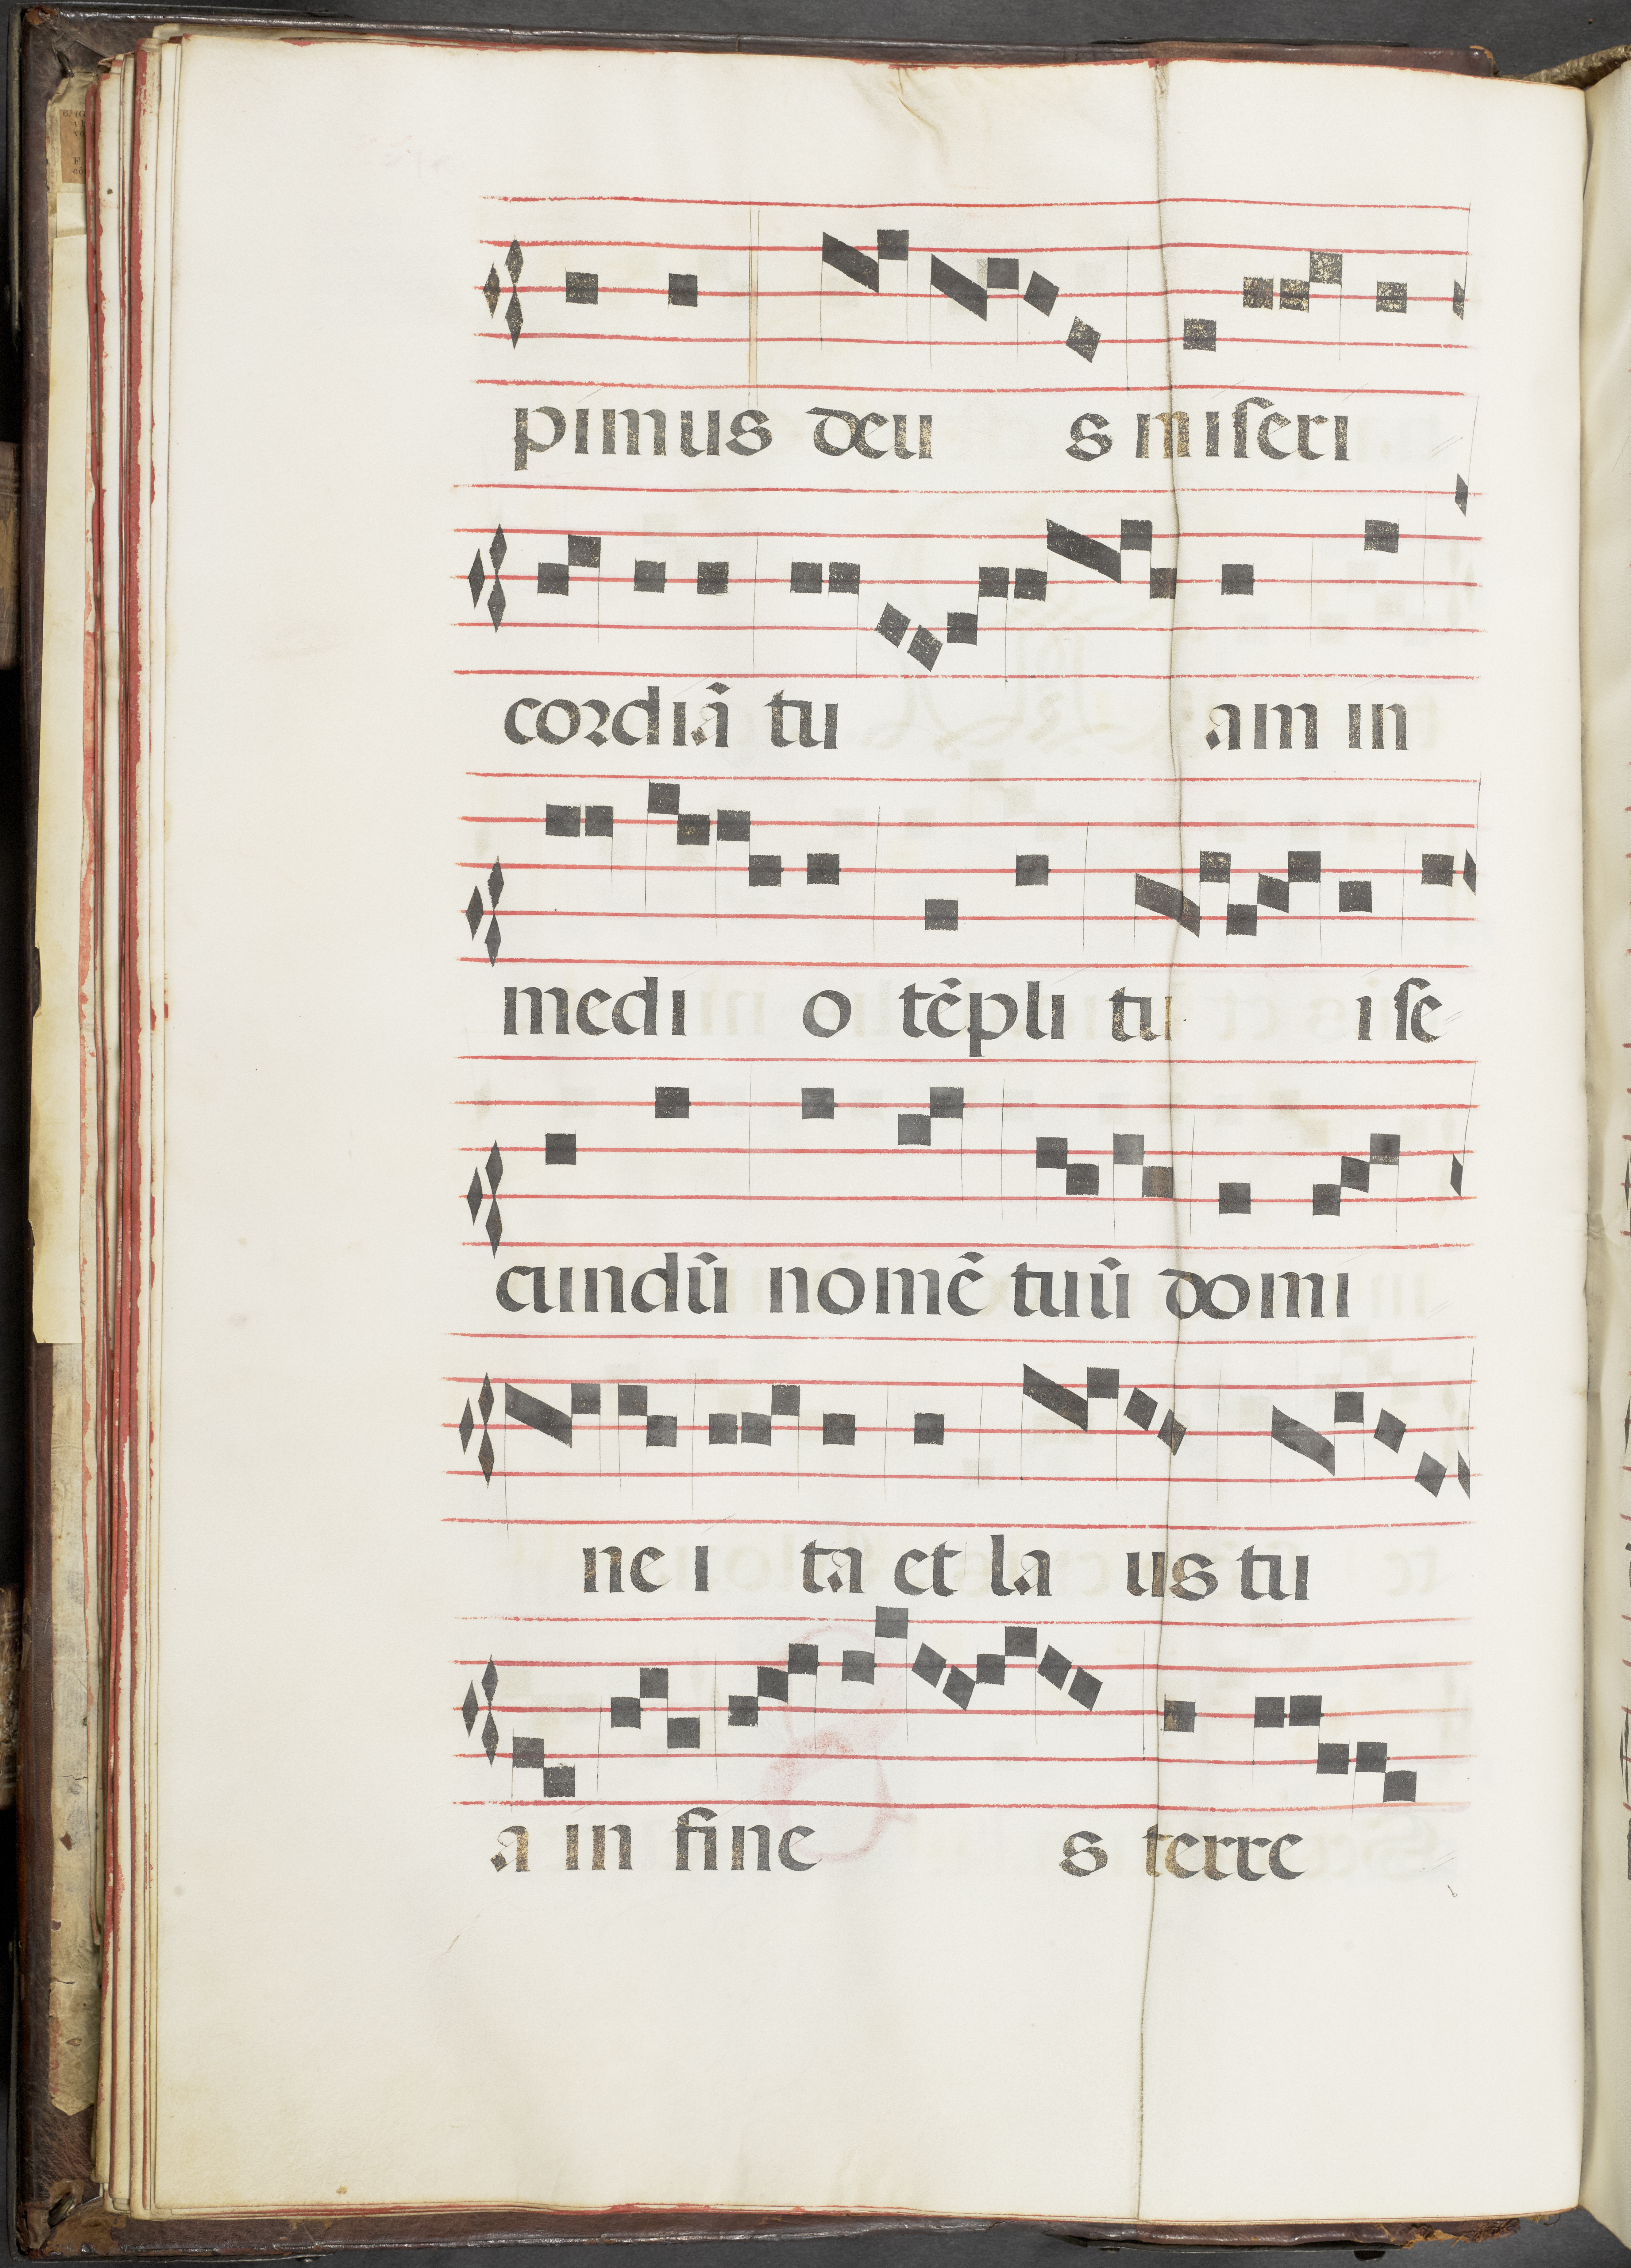 pimus deu s miseri
cordiã tu am in
medi o tẽpli tu i se
cundũ nomẽ tuũ domi
ne i ta et la us tu
a in fine s terre